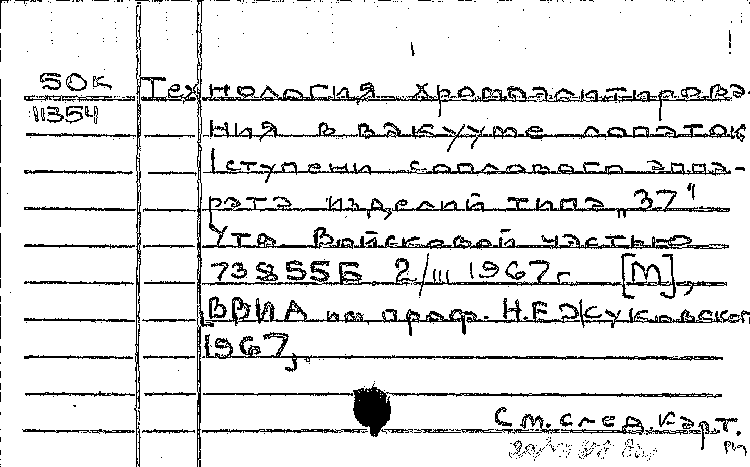 50К
11354
Технология хромалитирова-
ния в вакууме лопаток
I ступени соплового аппа-
рата изделий типа „37"
Утв. Войсковой частью
73855Б 2/III 1967г. [М],
ВВИА им. проф. Н.Е Жуковског
1967,.
См. след. карт.